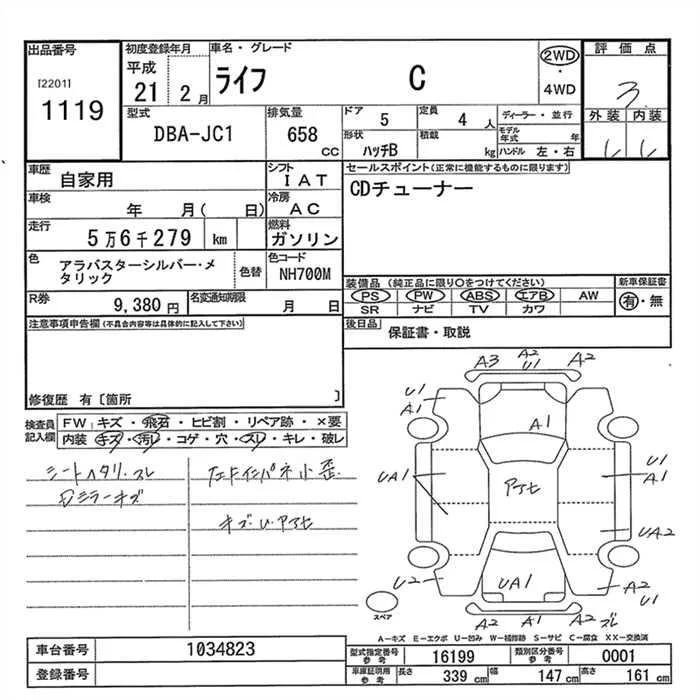 出品番号
[2201]
1119
初度登録年月
平成
21 2 月
車名・グレード
ライフ C
2WD
・
4WD
評価点
3
外装 内装
型式
DBA-JC1
排気量
658
CC
ドア
5
定員
4 人
ディーラー・並行
形状
ハッチB
積載
kg
モデル年式 年
ハンドル 左・右
車歴
自家用
シフト
IAT
車検
年 月( 日)
冷房
AC
走行
5万6千279 km
燃料
ガソリン
色
アラバスターシルバー・メ
タリック
色替
色コード
NH700M
R券
9,380 円
名変通知期限
月 日
セールスポイント(正常に機能するものに限ります)
CDチューナー
装備品 (純正品に限り○をつけてください)
新車保証書
PS PW ABS エアB AW
有・無
SR ナビ TV カワ
後日品
保証書・取説
注意事項申告欄 (不具合内容等は具体的に記入して下さい)
修復歴 有〔箇所 〕
検査員
記入欄
FW キズ・飛石・ヒビ割・リペア跡・×要
内装 キズ・汚レ・コゲ・穴・スレ・キレ・破レ
シートヘタリ.スレ
ミラーキズ
インパネ小歪
キズ・U・アセ
A3 A2 U1 A2
U1
A1
A1
UA1
アセ
U1
A1
UA2
U2
UA1
A2
U1
A2 A1 A2 ズレ
スペア
A−キズ E−エクボ U−凹み W−補修跡 S−サビ C−腐食 XX−交換済
車台番号
1034823
登録番号
型式指定番号
参考
16199
類別区分番号
参考
0001
車庫証明用
参考
長さ
339 cm
幅
147 cm
高さ
161 cm